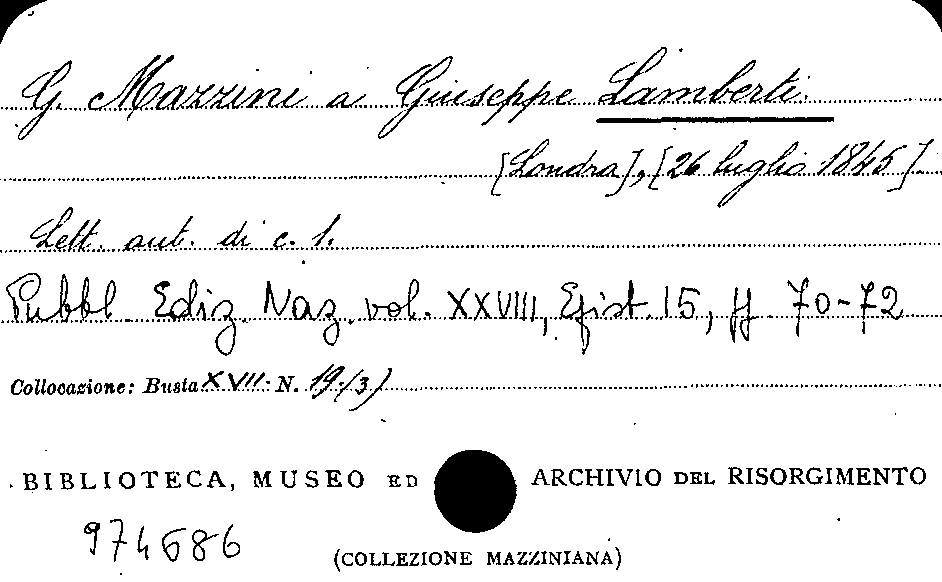 G. Mazzini a Giuseppe Lamberti.
[Londra], [26 luglio 1845].
Lett. aut. di c. 1.
Pubbl. Ediz. Naz. vol. XXVIII, Epist. 15, pp 70-72
Collocazione: Busta XVII. N. 19(3)
BIBLIOTECA, MUSEO ED ARCHIVIO DEL RISORGIMENTO
974686
(COLLEZIONE MAZZINIANA)